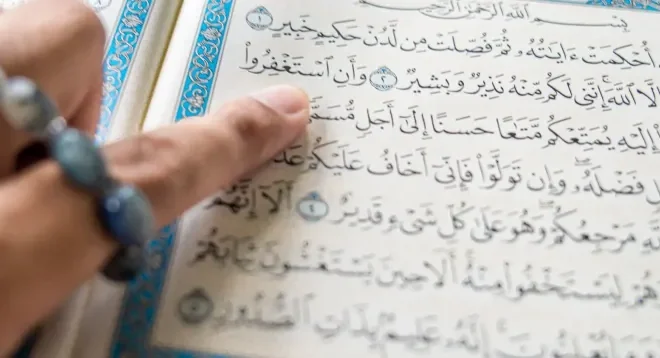 بِسْمِ ٱللَّهِ ٱلرَّحْمَٰنِ ٱلرَّحِيمِ
أُحْكِمَتْ ءَايَٰتُهُۥ ثُمَّ فُصِّلَتْ مِن لَّدُنْ حَكِيمٍ خَبِيرٍ ١
إِلَّا ٱللَّهَ إِنَّنِى لَكُم مِّنْهُ نَذِيرٌ وَبَشِيرٌ ٢ وَأَنِ ٱسْتَغْفِرُوا۟
إِلَيْهِ يُمَتِّعْكُم مَّتَٰعًا حَسَنًا إِلَىٰٓ أَجَلٍ مُّسَمًّ
فَضْلَهُۥ وَإِن تَوَلَّوْا۟ فَإِنِّىٓ أَخَافُ عَلَيْكُمْ عَذَ
مَرْجِعُكُمْ وَهُوَ عَلَىٰ كُلِّ شَىْءٍ قَدِيرٌ ٤ أَلَآ إِنَّهُمْ
لِيَسْتَخْفُوا۟ مِنْهُ أَلَا حِينَ يَسْتَغْشُونَ ثِيَابَهُمْ
إِنَّهُۥ عَلِيمٌۢ بِذَاتِ ٱلصُّدُورِ ٥